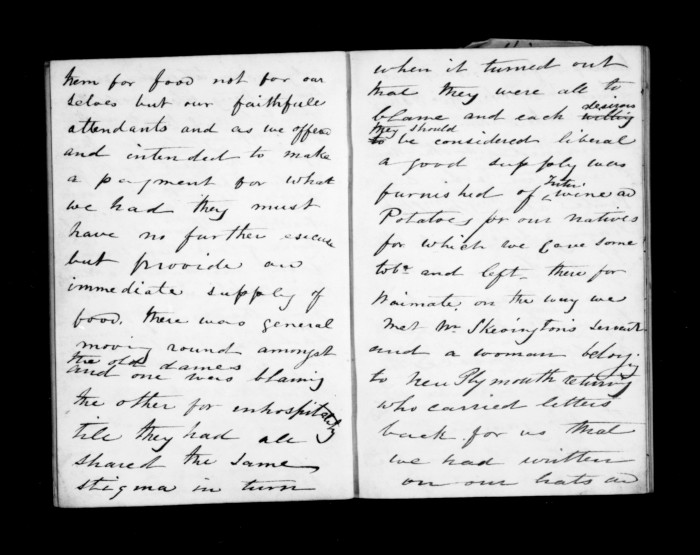 them for food not for our
selves but our faithfull
attendants and as we offered
and intended to make
a payment for what
we had they must
have no further excuse
but provide an
immediate supply of
food. there was general
moving round amongst
the old dames
and one was blaming
the other for inhospitality
till they had all
shared the same
stigma in turn
when it turned out
that they were all to
blame and each willing desirous
to they should be considered liberal
a good supply was
furnished of wine and
Potatoes for our natives
for which we gave some
tobo and left there for
Waimate. on the way we
met Mr Skevington's servant
and a woman belonging
to New Plymouth returning
who carried letters
back for us that
we had written
on our hats and